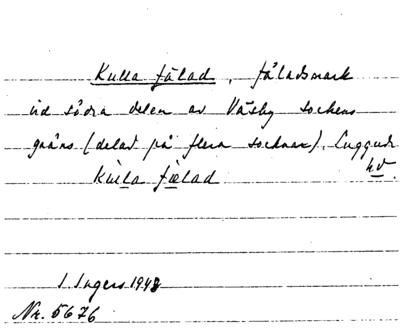 Kulla fälad, fäladsmark
vid södra delen av Väsby sockens
gräns (delad på flera socknar). Luggude
hd.
Kulla fælad
I. Ingers 1943
Nr. 5676